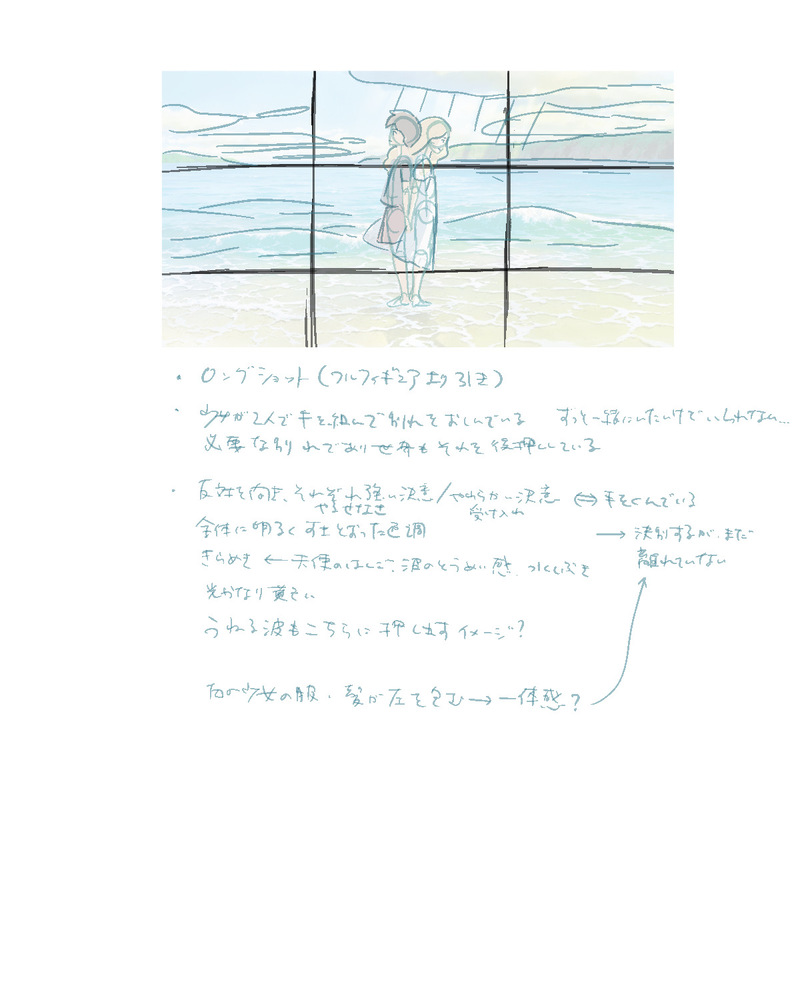 ・ロングショット（フルフィギュアより引き）
・少女が2人で手を組んで別れをおしんでいる ずっと一緒にいたいけどいられない…
必要な別れであり世界もそれを後押ししている
・反対を向き、それぞれ強い決意/やわらかい決意 ⇔ 手をくんでいる
やるせなさ 受け入れ
全体に明るくすきとおった色調 → 決別するが、まだ
きらめき ← 天使のはしご、波のとうめい感、水しぶき 離れていない
光かなり黄色い
うねる波もこちらに押し出すイメージ？
右の少女の服・髪が左を包む→一体感？